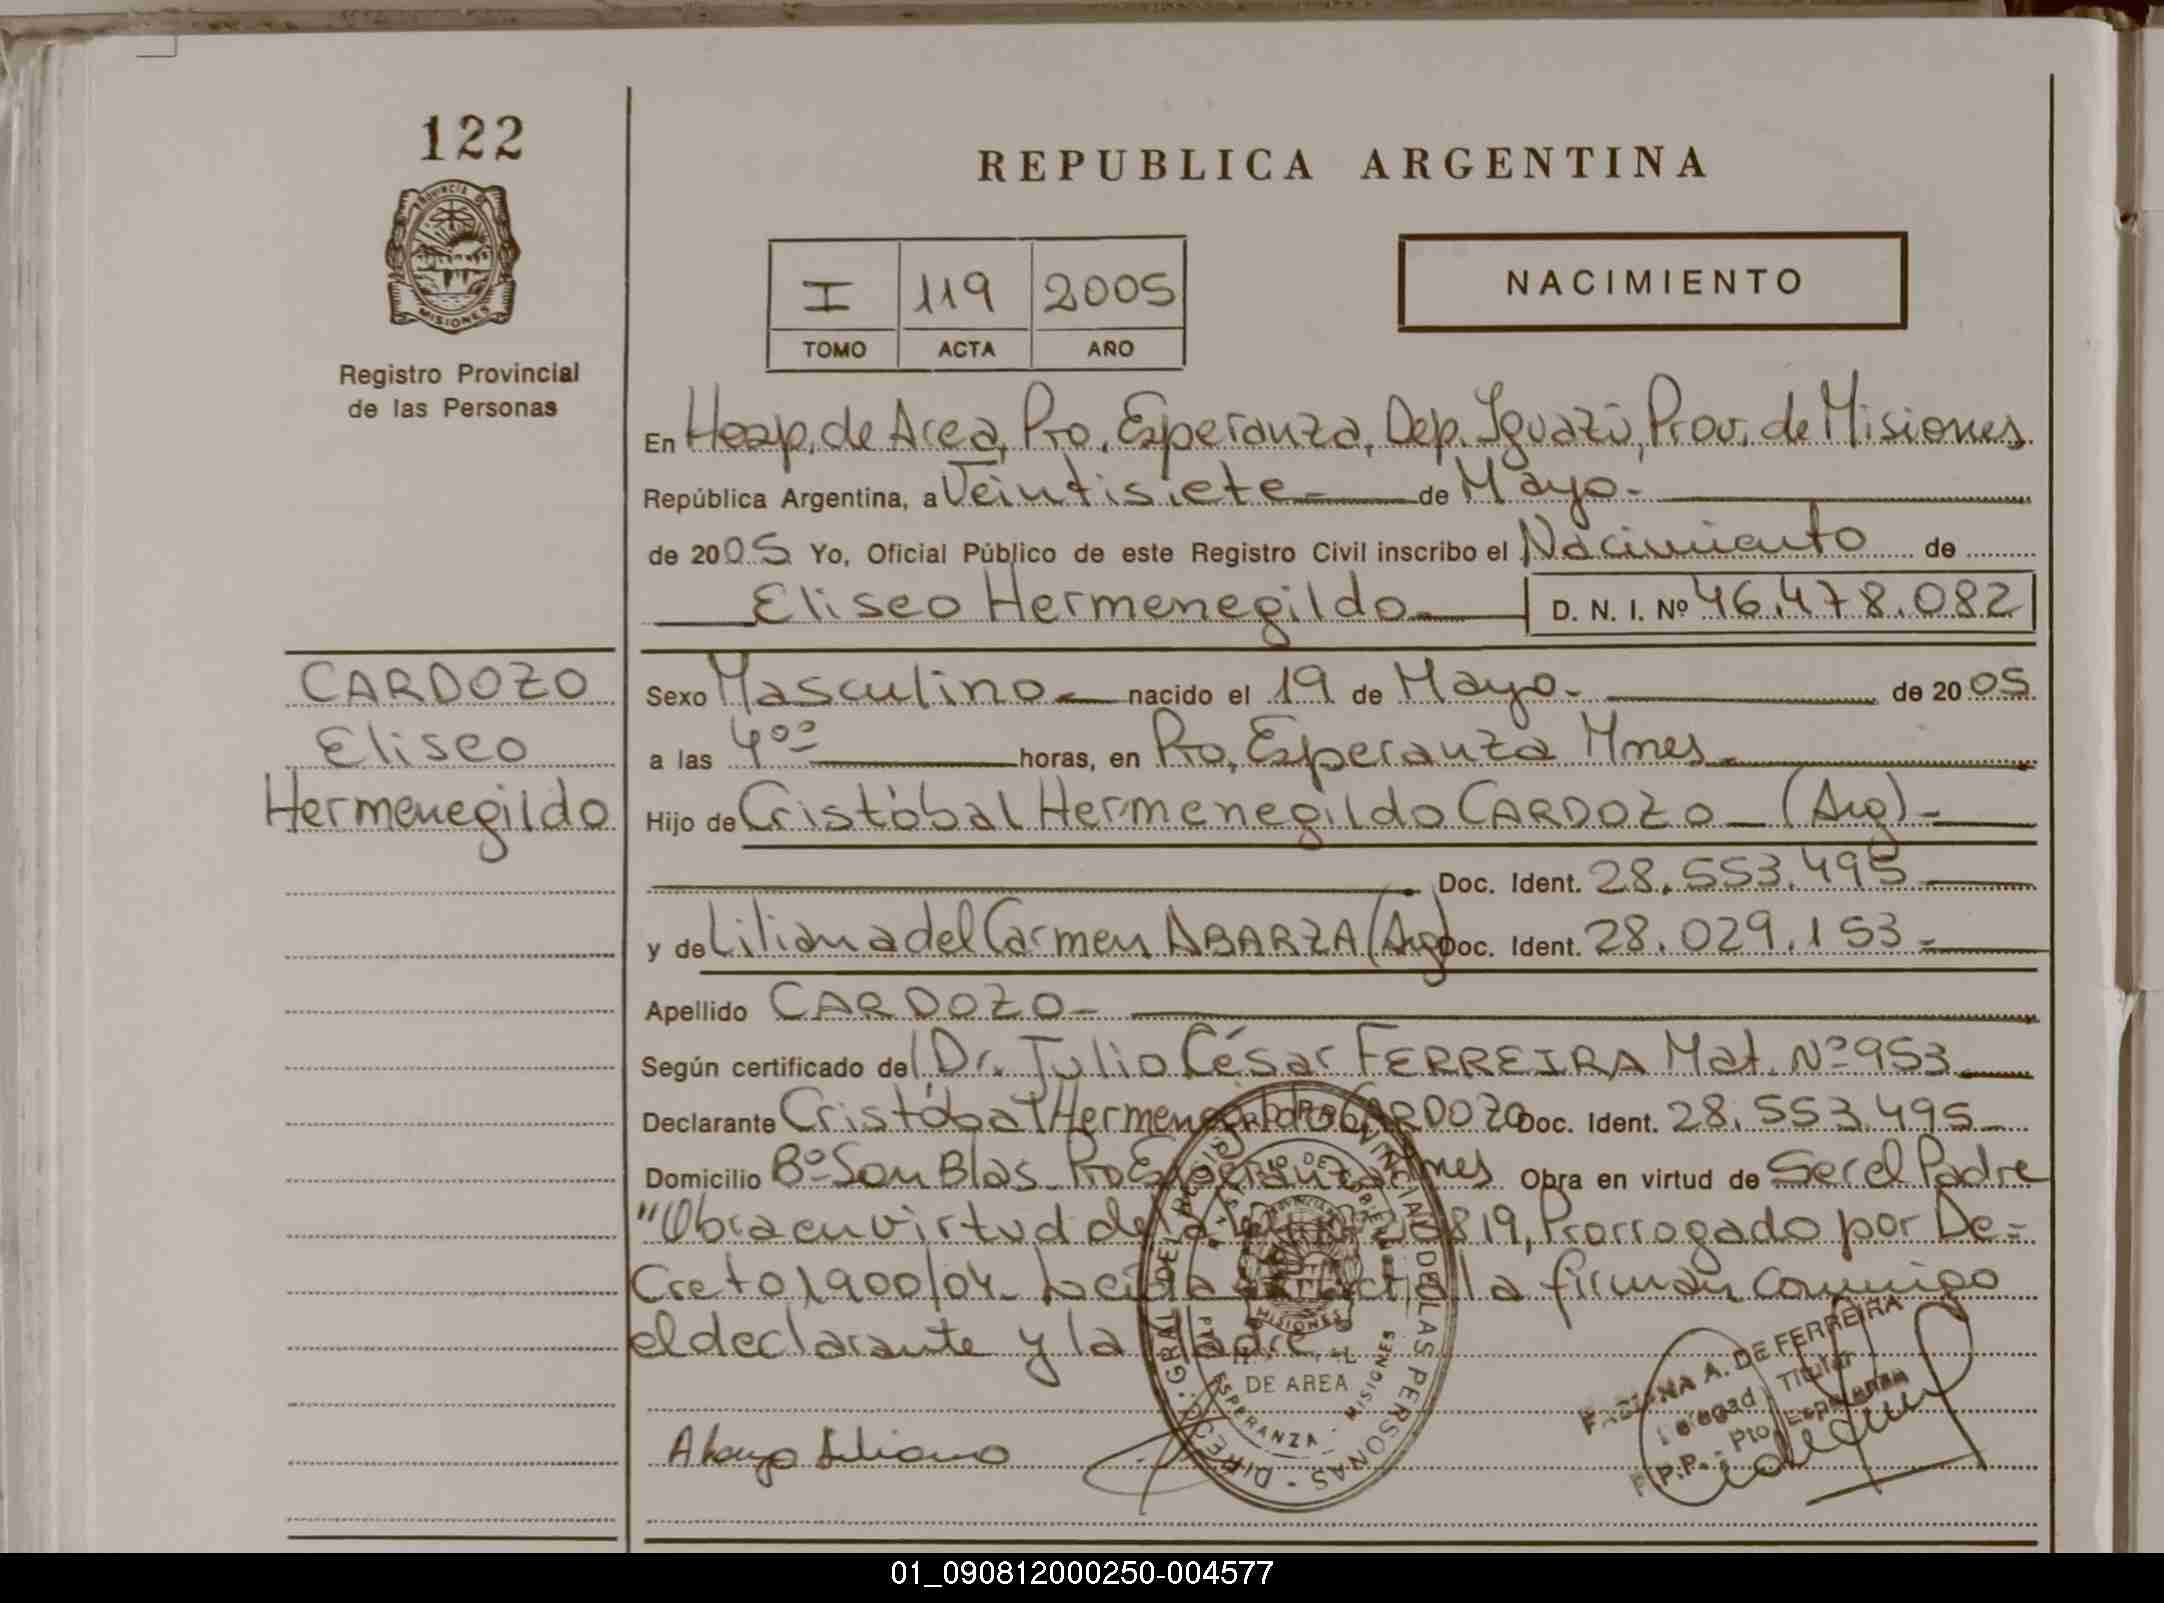 122
PROVINCIA DE
MISIONES
Registro Provincial
de las Personas
REPUBLICA ARGENTINA
I 119 2005
TOMO ACTA AÑO
NACIMIENTO
En Hosp. de Area, Pto. Esperanza, Dep. Iguazú, Prov. de Misiones
República Argentina, a Veintisiete de Mayo.
de 2005 Yo, Oficial Público de este Registro Civil inscribo el Nacimiento de
Eliseo Hermenegildo D. N. I. Nº 46.478.082
CARDOZO
Eliseo
Hermenegildo
Sexo Masculino nacido el 19 de Mayo. de 2005
a las 4ºº horas, en Pto. Esperanza Mnes.
Hijo de Cristóbal Hermenegildo CARDOZO (Arg)
Doc. Ident. 28.553.495
y de Liliana del Carmen ABARZA (Arg) Doc. Ident. 28.029.153
Apellido CARDOZO
Según certificado del Dr. Julio César FERREIRA Mat. Nº 953
Declarante Cristóbal Hermenegildo CARDOZO Doc. Ident. 28.553.495
Domicilio Bº San Blas Pto Esperanza Mnes Obra en virtud de Ser el Padre
"Obra en virtud de la Ley 25819, Prorrogado por De=
creto 1900/04. Leída el acta la firman conmigo
el declarante y la Madre
DIREC. GRAL DEL REGISTRO PROVINCIAL DE LAS PERSONAS
MISIONES
DE AREA
ESPERANZA - MISIONES
A. DE FERREIRA
Titular
Pto. Esperanza
Liliana
01_090812000250-004577